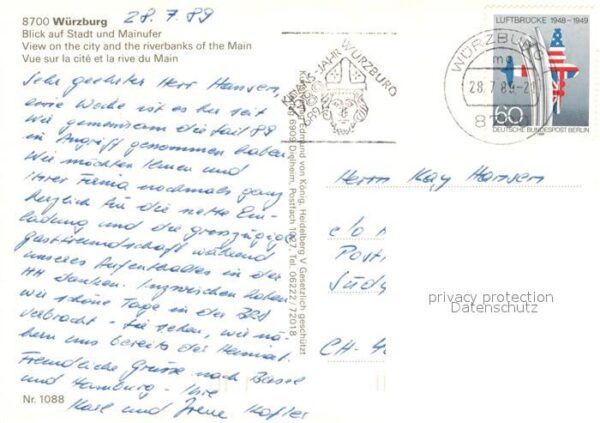 28.7.89
8700 Würzburg
Blick auf Stadt und Mainufer
View on the city and the riverbanks of the Main
Vue sur la cité et la rive du Main
Sehr geehrter Herr Hansen,
eine Woche ist es her seit
wir gemeinsam die Sail 89
in Angriff genommen haben.
Wir möchten Ihnen und
Ihrer Firma nochmals ganz
herzlich für die nette Ein-
ladung und die grosszügige
Gastfreundschaft während
unseres Aufenthaltes in der
HH danken. Inzwischen haben
wir schöne Tage in der BRD
verbracht - Sie sehen, wir nä-
hern uns bereits der Heimat.
Freundliche Grüsse nach Basel
und Hamburg - Ihre
Karl und Irene Hofer
Nr. 1088
Edmund von König, Heidelberg V Gesetzlich geschützt
6909 Dielheim, Postfach 1027, Tel. 06222/72018
WÜRZBURG
LUFTBRÜCKE 1948-1949
60
DEUTSCHE BUNDESPOST BERLIN
WÜRZBURG
28.7.89-21
Herrn Kay Hansen
c/o
Post
CH-4
privacy protection
Datenschutz